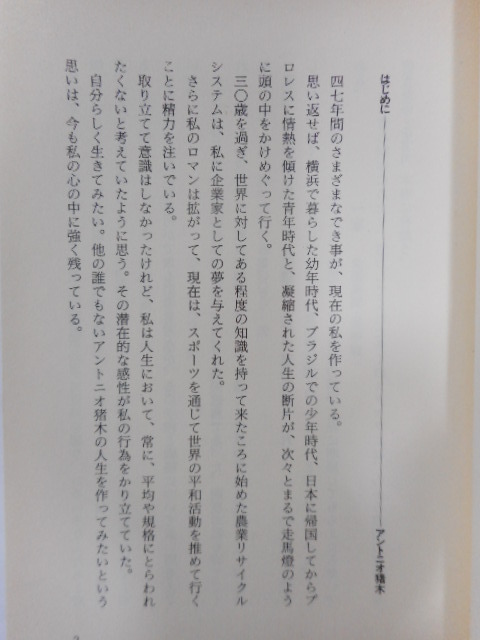 はじめに
アントニオ猪木
四七年間のさまざまなでき事が、現在の私を作っている。
思い返せば、横浜で暮らした幼年時代、ブラジルでの少年時代、日本に帰国してからプ
ロレスに情熱を傾けた青年時代と、凝縮された人生の断片が、次々とまるで走馬燈のよう
に頭の中をかけめぐって行く。
三〇歳を過ぎ、世界に対してある程度の知識を持って来たころに始めた農業リサイクル
システムは、私に企業家としての夢を与えてくれた。
さらに私のロマンは拡がって、現在は、スポーツを通じて世界の平和活動を推めて行く
ことに精力を注いでいる。
取り立てて意識はしなかったけれど、私は人生において、常に、平均や規格にとらわれ
たくないと考えていたように思う。その潜在的な感性が私の行為をかり立てていた。
自分らしく生きてみたい。他の誰でもないアントニオ猪木の人生を作ってみたいという
思いは、今も私の心の中に強く残っている。